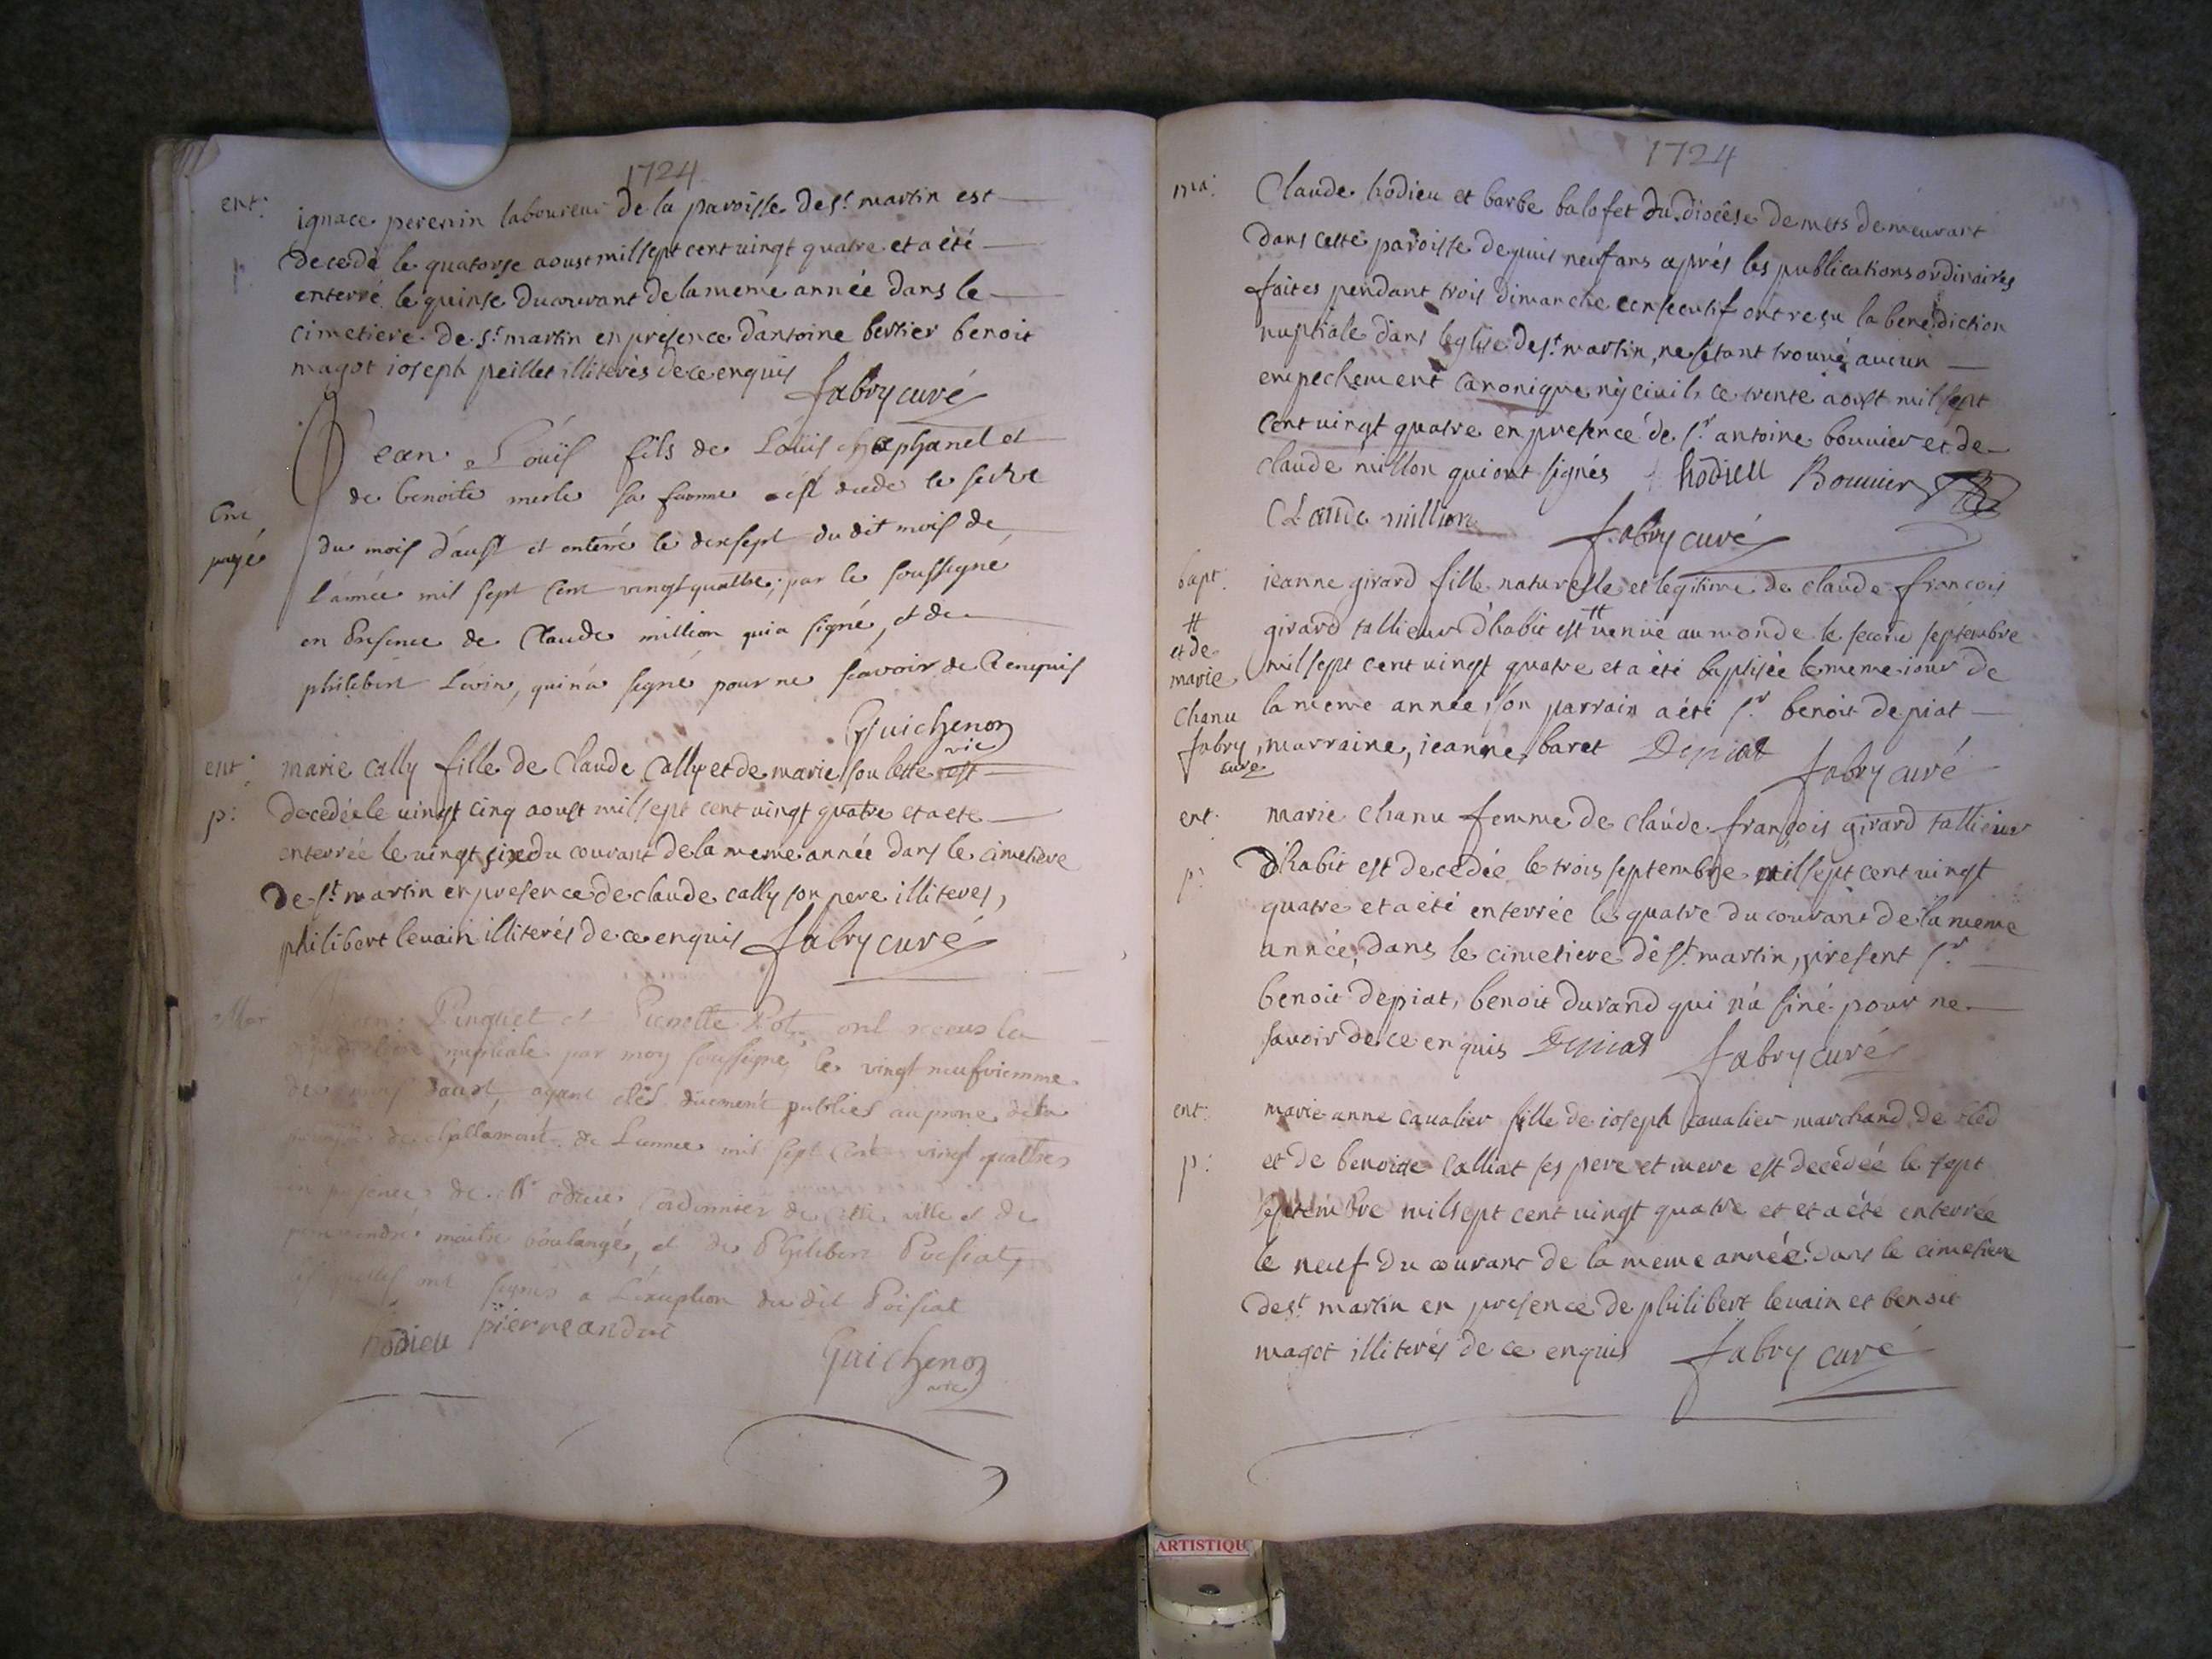 1724
ent:
ignace perenin laboureur de la paroisse de st martin est
decedé le quatorse aoust mil sept cent vingt quatre et a été
p:
enterré le quinse du courant de la meme année dans le
cimetiere de st martin en presence d'antoine bertier benoit
magot ioseph peillet illiterés de ce enquis
fabry curé
Jean Loüis fils de Loüis et
de benoite merle sa famme est decede le seize
Ent
payé
du mois d'aust et enterré le dixsept du dit mois de
l'année mil sept cent vingt quattre, par le soussigné
en Presence de Claude million qui a signé, et de
philibert Levin, qui n'a signé pour ne scavoir de Ce enquis
Guichenon
vic
ent:
marie cally fille de Claude Cally et de marie soulette est
p:
decedée le vingt cinq aoust mil sept cent vingt quatre et a ete
enterrée le vingt six du courant de la meme année dans le cimetiere
de st martin en presence de claude cally son pere illiteres,
philibert levain illiterés de ce enquis fabry curé
Mar
Pinquet et Pierrette ont receus la
nuptiale par moy soussigné le vingt neufviemme
du mois d'aust, ayant étés duement publiés au prone de la
de Challamont de L'année mil sept Cent vingt quattre
en presence de Cl odieu Cordonnier de Cette ville et de
maitre boulangé, et de Philibert Poisiat,
ont signés a L'exception du dit Poisiat
hodieu pierre andré
Guichenon
vic
1724
ma:
Claude hodieu et barbe balofet du diocêse de mets demeurant
dans cette paroisse depuis neuf ans aprés les publications ordinaires
faites pendant trois dimanche consecutif ont reçu la benediction
nuptiale dans leglise de st martin, ne s'etant trouvé aucun
empechement canonique ny civil, ce trente aoust mil sept
cent vingt quatre en presence de sr antoine bouvier et de
claude millon qui ont signés hodieu Bouvier
CLaude million
fabry curé
bapt:
ieanne girard fille naturelle et legitime de claude françois
#
girard tallieur d'habit est # venüe au monde le second septembre
et de
marie
mil sept cent vingt quatre et a été baptisée le meme iour de
Chanu
la meme année, son parrain a été sr benoit depiat
fabry
curé
marraine, ieanne baret Depiat
fabry curé
ent:
marie chanu femme de claude françois girard tallieur
p:
d'habit est decedée le trois septembre mil sept cent vingt
quatre et a été enterrée le quatre du courant de la meme
année, dans le cimetiere de st martin, present sr
benoit depiat, benoit durand qui n'a siné pour ne
savoir de ce enquis Depiat fabry curé
ent:
marie anne cavalier fille de ioseph cavalier marchand de
p:
et de benoite Calliat ses pere et mere est decédée le sept
septembre mil sept cent vingt quatre et et a été enterrée
le neuf du courant de la meme année dans le cimetiere
de st martin en presence de philibert levain et benoit
magot illiterés de ce enquis fabry curé
ARTISTIQU